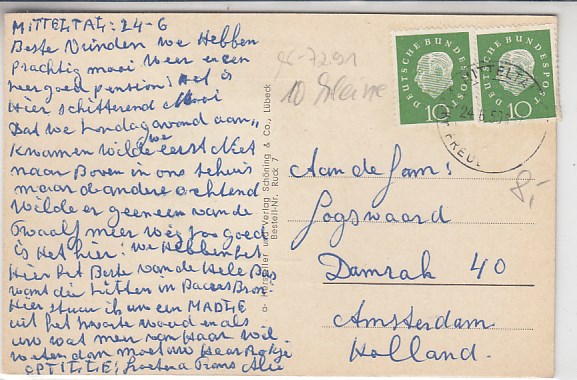 MITTELTAL: 24-6
Beste Vrinden we Hebben
Prachtig mooi weer en een
zeer goed pension! Het is
Hier schitterend Mooi
Dat we Zondagavond aan
kwamen wilde we eerst Niet
naar Boven in ons tehuis
maar de andere ochtend
wilde er geneen van de
twaalf meer weg zoo goed
is Het hier! We Hebben het
Hier het Beste van de Hele Bus
want die zitten in
Hier stuur ik u een MADLE
uit het zwarte woud en als
u wat meer van Haar wil
weten dan moet u Haar Rokje
OPTILLE! Frans Alie
DEUTSCHE BUNDESPOST
10
DEUTSCHE BUNDESPOST
10
MITTELTAL
24.6.59
FREUD
10 kleine
8,-
Hersteller und Verlag Schöning & Co., Lübeck
Bestell-Nr. Ruck 7
Aan de Fam:
Logswaard
Damrak 40
Amsterdam
Holland.